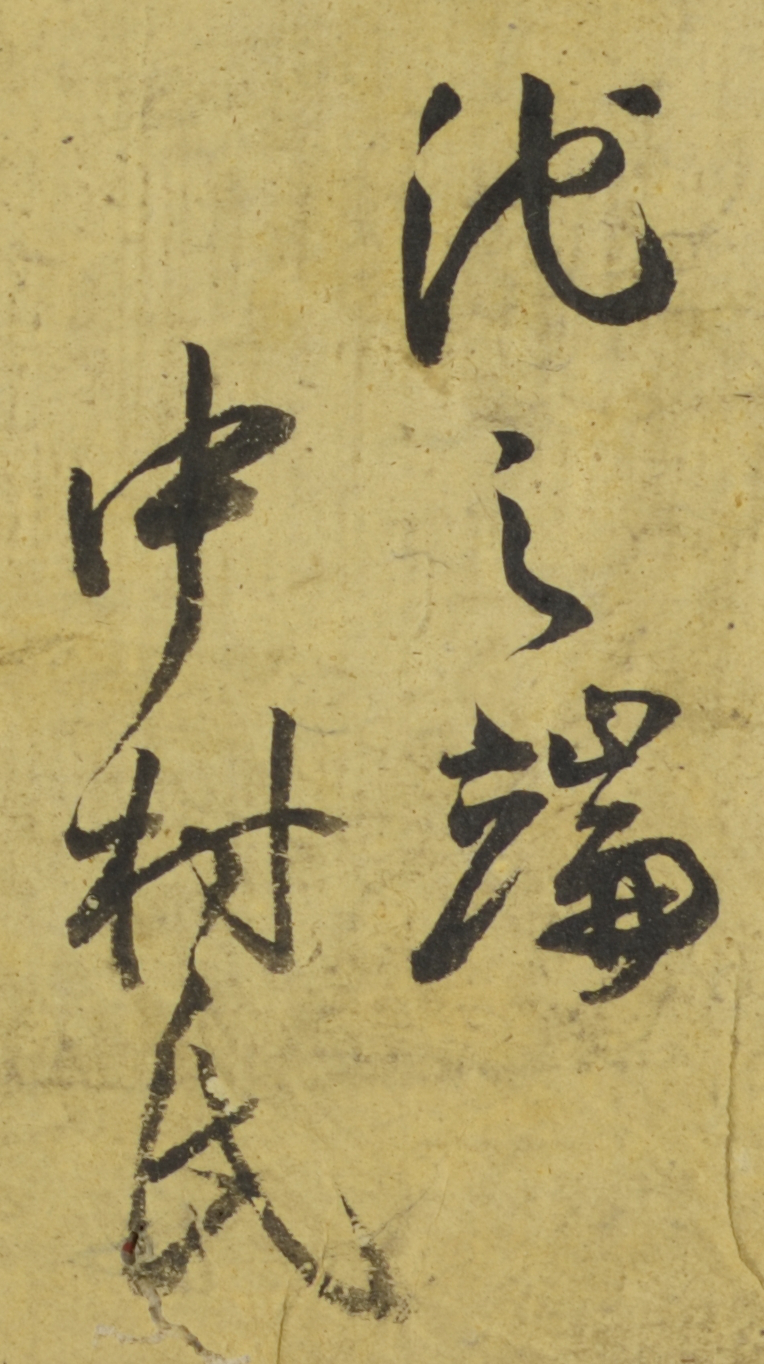 池之端
中村氏